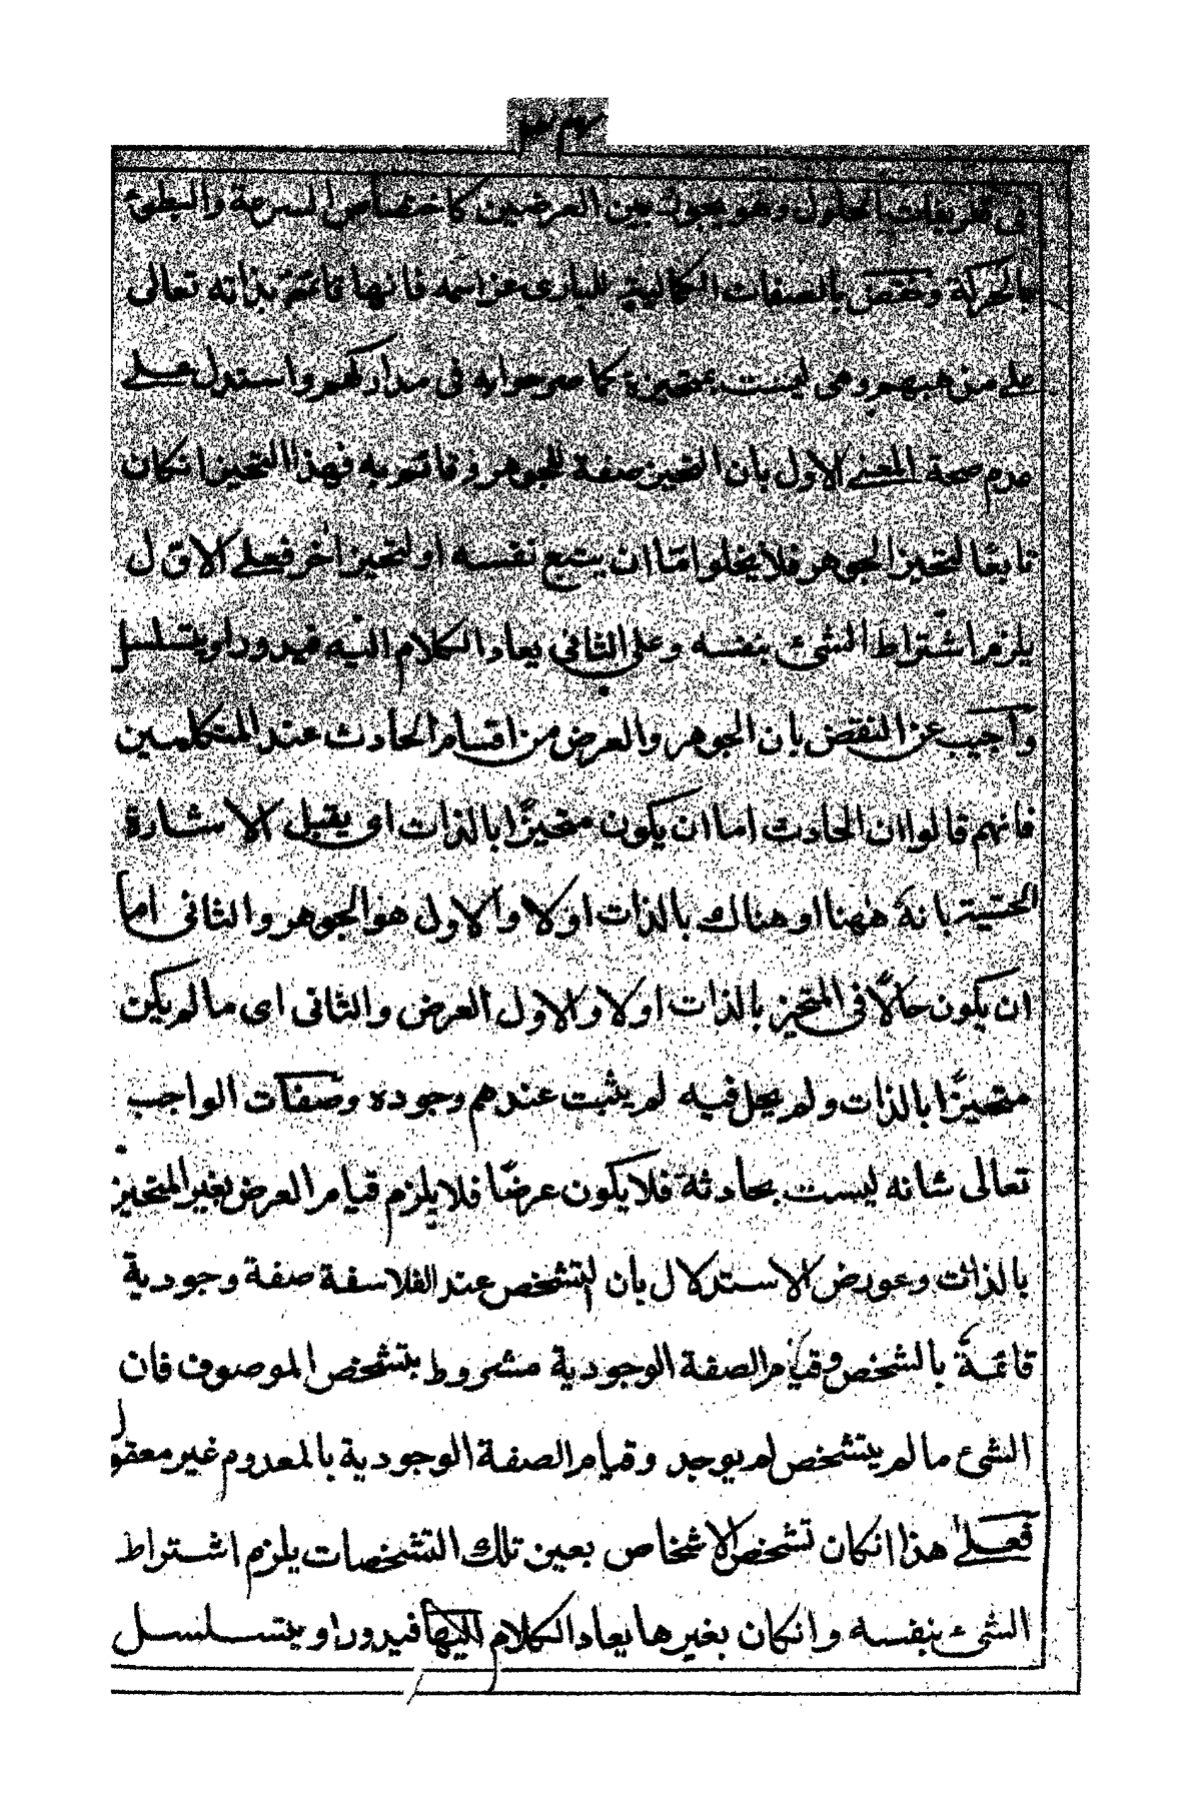 في تعريفات بالحلول وهو يجوز بين العرضين كاختصاص السرعة والبطئ
بالحركة وتختص بالصفات الكمالية للباري عز اسمه فانها قائمة بذاته تعالى
على مذهبهم وهي ليست بمتحيزة كما صرحوا به في مداركهم واستدل على
عدم صحة المعنى الاول بأن التحيز صفة للجوهر وقائم به فهذا التحيز انكان
تابعًا لتحيز الجوهر فلا يخلو امّا ان يتبع نفسه او لتحيز أخر فعلى الاوّل
يلزم اشتراط الشئ بنفسه وعلى الثاني يعاد الكلام اليه فيدور او يتسلسل
وأجيب عن النقض بان الجوهر والعرض من اقسام الحادث عند المتكلمين
فانهم قالوا ان الحادث اما ان يكون متحيزًا بالذات اى يقبل الاشارة
الحسّية بانهَ ههنا او هناك بالذات اولا والاول هو الجوهر والثانى اما
ان يكون حالًا فى المتحيز بالذات اولا والاول العرض والثانى اى مالم يكن
متحيزًا بالذات ولم يحل فيه لم يثبت عندهم وجوده وصفات الواجب
تعالى شانه ليست بحادثة فلا يكون عرضًا فلا يلزم قيام العرض بغير المتحيز
بالذات وعورض الاستدلال بأن التشخص عند الفلاسفة صفة وجودية
قائمة بالشخص وقيام الصفة الوجودية مشروط بتشخص الموصوف فان
الشئ مالم يتشخص لم يوجد وقيام الصفة الوجودية بالمعدوم غير معقول
فعلى هذا انكان تشخص الاشخاص بعين تلك التشخصات يلزم اشتراط
الشئ بنفسه وانكان بغيرها يعاد الكلام اليها فيدور او يتسلسل